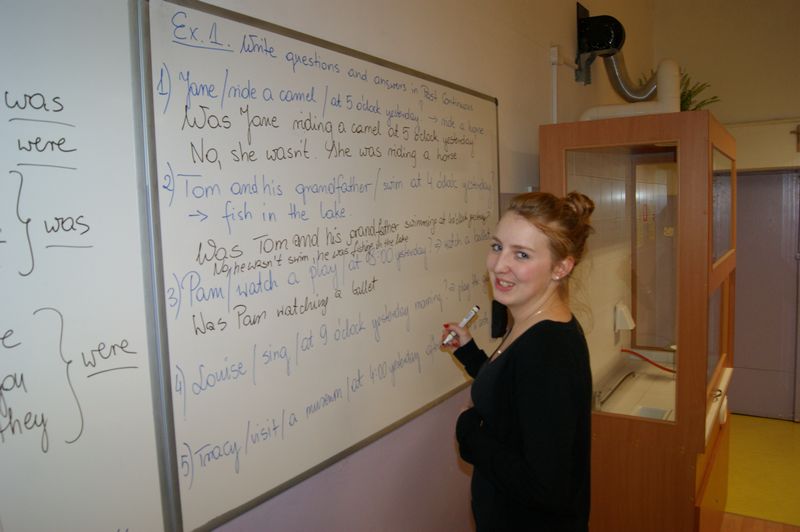 was
were
was
were
you
they
Ex. 1. Write questions and answers in Past Continuous
1) Jane / ride a camel / at 5 o'clock yesterday? → ride a horse
Was Jane riding a camel at 5 o'clock yesterday
No, she wasn't. She was riding a horse.
2) Tom and his grandfather / swim at 4 o'clock yesterday?
→ fish in the lake.
Was Tom and his grandfather swimming at
No, he wasn't swim, he was fishing in the lake
3) Pam / watch a play / at 15:00 yesterday? → watch a ballet
Was Pam watching a ballet
4) Louise / sing / at 9 o'clock yesterday morning? → play the
5) Tracy / visit / a museum / at 4:00 yesterday